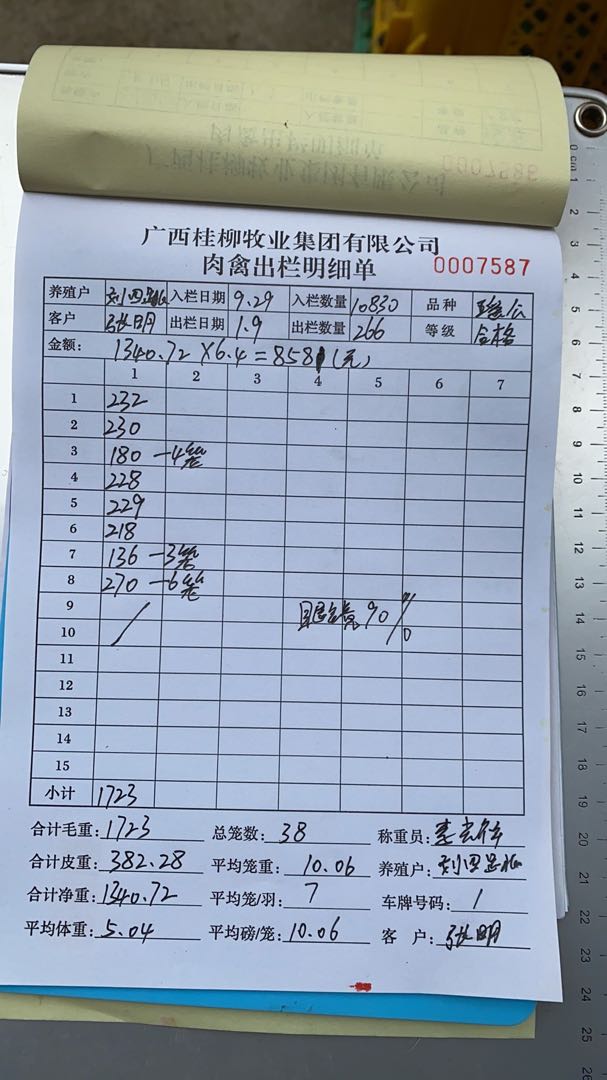 广西桂柳牧业集团有限公司
肉禽出栏明细单 0007587
养殖户 入栏日期 9.29 入栏数量 10830 品种
客户 张明 出栏日期 1.9 出栏数量 266 等级 合格
金额: 1340.72×6.4=8581(元)
1 2 3 4 5 6 7
1 232
2 230
3 180 -4笼
4 228
5 229
6 218
7 136 -3笼
8 270 -6笼
9 90%
10
11
12
13
14
15
小计 1723
合计毛重: 1723 总笼数: 38 称重员:
合计皮重: 382.28 平均笼重: 10.06 养殖户:
合计净重: 1340.72 平均笼/羽: 7 车牌号码: 1
平均体重: 5.04 平均磅/笼: 10.06 客户: 张明